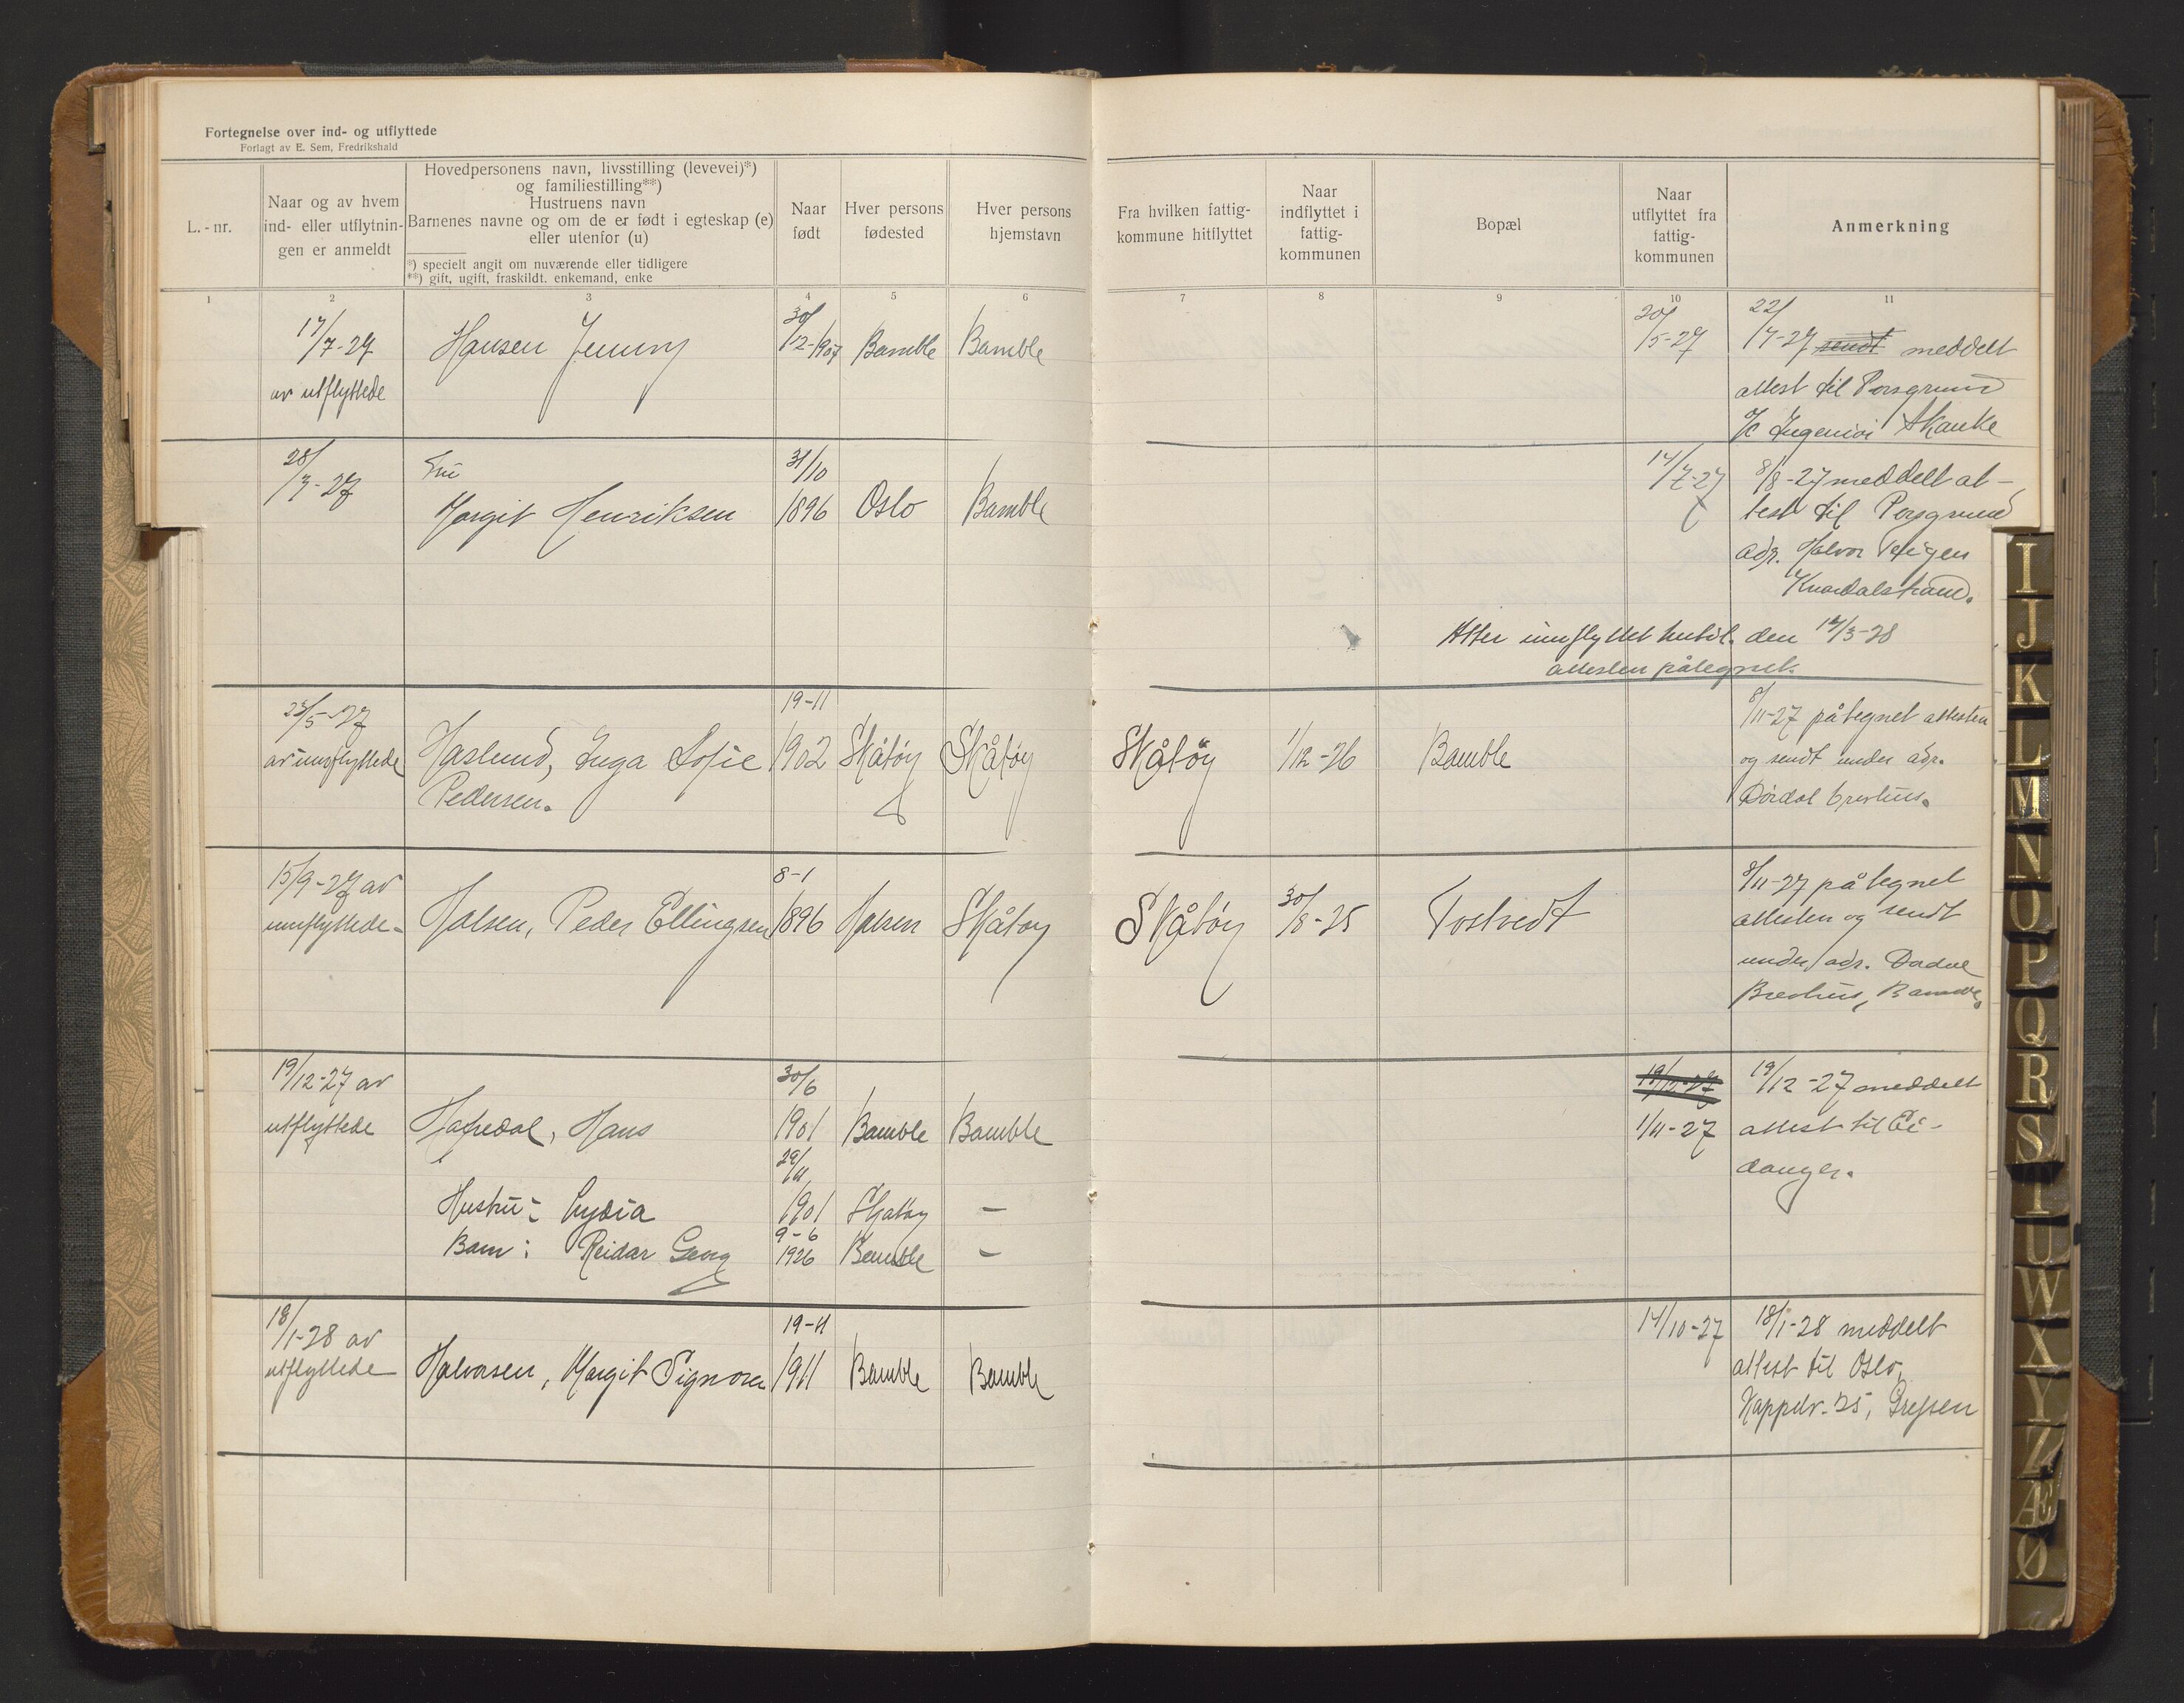 Fortegnelse over ind- og utflyttede
Forlagt av E. Sem, Fredrikshald
L.-nr.
Naar og av hvem
ind- eller utflytnin-
gen er anmeldt
Hovedpersonens navn, livsstilling (levevei)*)
og familiestilling**)
Hustruens navn
Barnenes navne og om de er født i egteskap (e)
eller utenfor (u)
*) specielt angit om nuværende eller tidligere
**) gift, ugift, fraskildt. enkemand, enke
Naar
født
Hver persons
fødested
Hver persons
hjemstavn
Fra hvilken fattig-
kommune hitflyttet
Naar
indflyttet i
fattig-
kommunen
Bopæl
Naar
utflyttet fra
fattig-
kommunen
Anmerkning
1 2 3 4 5 6 7 8 9 10 11
17/7-27
av utflyttede
Hansen Jenny
30/12-1907 Bamble Bamble
20/5-27
22/7-27 sendt meddelt
attest til Porsgrund
c/o Ingeniør Skanke
28/7-27
Fru
Margit Henriksen
31/10
1896 Oslo Bamble
14/7-27
8/8-27 meddelt at-
test til Porsgrund
adr. Halvor Vefigen
Knardalstrand.
Atter innflyttet hertil den 14/3-28
attesten påtegnet.
23/5-27
av innflyttede
Haslund, Inga Sofie
Pedersen.
19-11
1902 Skåtøy Skåtøy
Skåtøy 1/12-26 Bamble
8/11-27 påtegnet attesten
og sendt under adr.
Dördal brevhus.
15/9-27 av
innflyttede-
Holsen, Peder Ellingsen
8-1
1896 Holsen Skåtøy
Skåtøy 30/8-25 Tostvedt
8/11-27 påtegnet
attesten og sendt
under adr. Dördal
Brevhus, Bamble.
19/12-27 av
utflyttede
Hafredal, Hans
30/6
1901 Bamble Bamble
19/12-27
1/11-27
19/12-27 meddelt
attest til Ei-
danger.
29/11
Hustru: Lydia 1901 Skåtøy —
9-6
Barn: Reidar Georg 1926 Bamble —
18/1-28 av
utflyttede
Halvorsen, Margit Signora
19-11
1911 Bamble Bamble
14/10-27
18/1-28 meddelt
attest til Oslo,
Kappelv. 25, Grefsen
I
J
K
L
M
N
O
P
Q
R
S
T
U
W
X
Y
Z
Æ
Ø